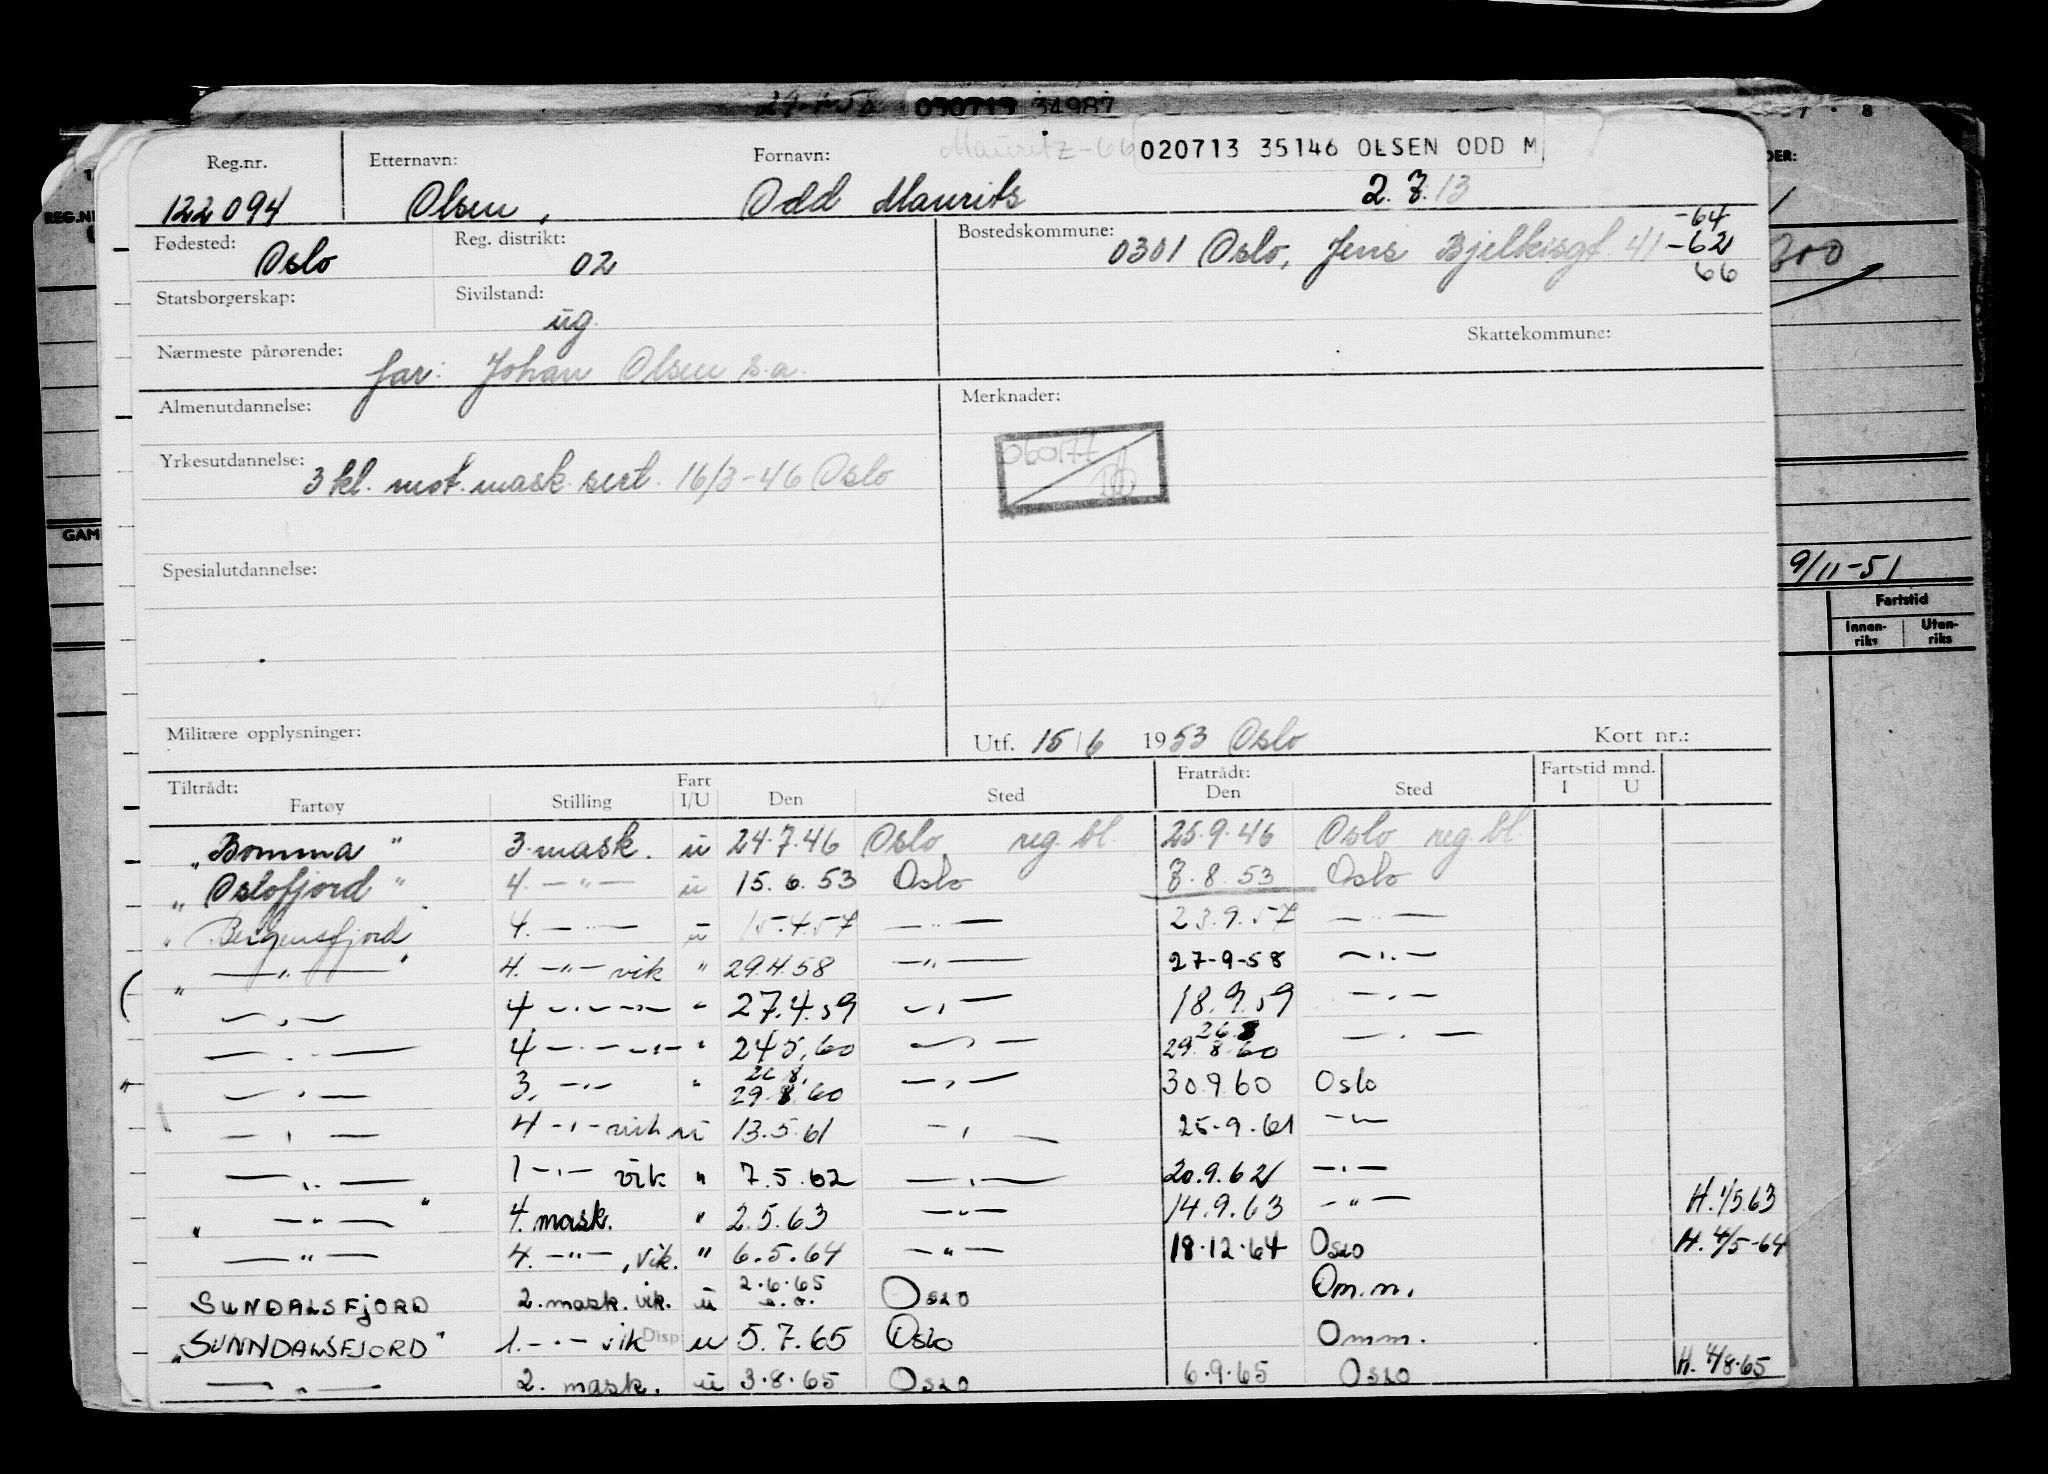 29-7-53 050713 34987
Reg.nr. Etternavn: Fornavn: Mauritz-66 020713 35146 OLSEN ODD M
122094 Olsen, Odd Maurits 2.7.13
Fødested: Reg. distrikt: Bostedskommune: -64
Oslo 02 0301 Oslo, Jens Bjelkesgt. 41 -62
66
Statsborgerskap: Sivilstand:
ug.
Skattekommune:
Nærmeste pårørende: far: Johan Olsen s.a.
Almenutdannelse: Merknader:
060177
Yrkesutdannelse: 3 kl. mot. mask. sert. 16/3-46 Oslo
Spesialutdannelse:
Militære opplysninger: Utf. 15/6 1953 Oslo Kort nr.:
Tiltrådt: Fart Fratrådt: Fartstid mnd.
Fartøy Stilling I/U Den Sted Den Sted I U
„Bomma" 3. mask. u 24.7.46 Oslo reg. bl. 25.9.46 Oslo reg. bl.
„Oslofjord" 4. —"— u 15.6.53 Oslo 7.8.53 Oslo
„Bergensfjord 4. —"— u 15.4.57 —"— 23.9.57 —"—
„—"—" 4. —"— vik " 29.4.58 —"— 27-9-58 —"—
—"— 4 —"— —"— " 27.4.59 —"— 18.9.59 —"—
—"— 4 —"— —"— " 24.5.60 —"— 26.8 29.8.60 —"—
—"— 3. —"— " 26.8. 29.8.60 —"— 30.9.60 Oslo
—"— 4 —"— vik u 13.5.61 —"— 25-9-61 —"—
—"— 1 —"— vik " 7.5.62 —"— 20.9.62 —"—
„—"—" 4. mask. " 2.5.63 —"— 14.9.63 —"— H. 1/5.63
—"— 4. —"—, vik. " 6.5.64 —"— 18.12.64 Oslo H. 4/5-64
SUNDALSFJORD 2. mask. vik. u 2.6.65 s.o. Oslo Om.m.
„SUNNDALSFJORD" 1. —"— vik Disp u 5.7.65 Oslo Omm.
—"— 2. mask. u 3.8.65 Oslo 6.9.65 Oslo H. 4/8-65
REG.N
GAM
DER:
9/11-51
Fartstid
Innen-riks Uten-riks